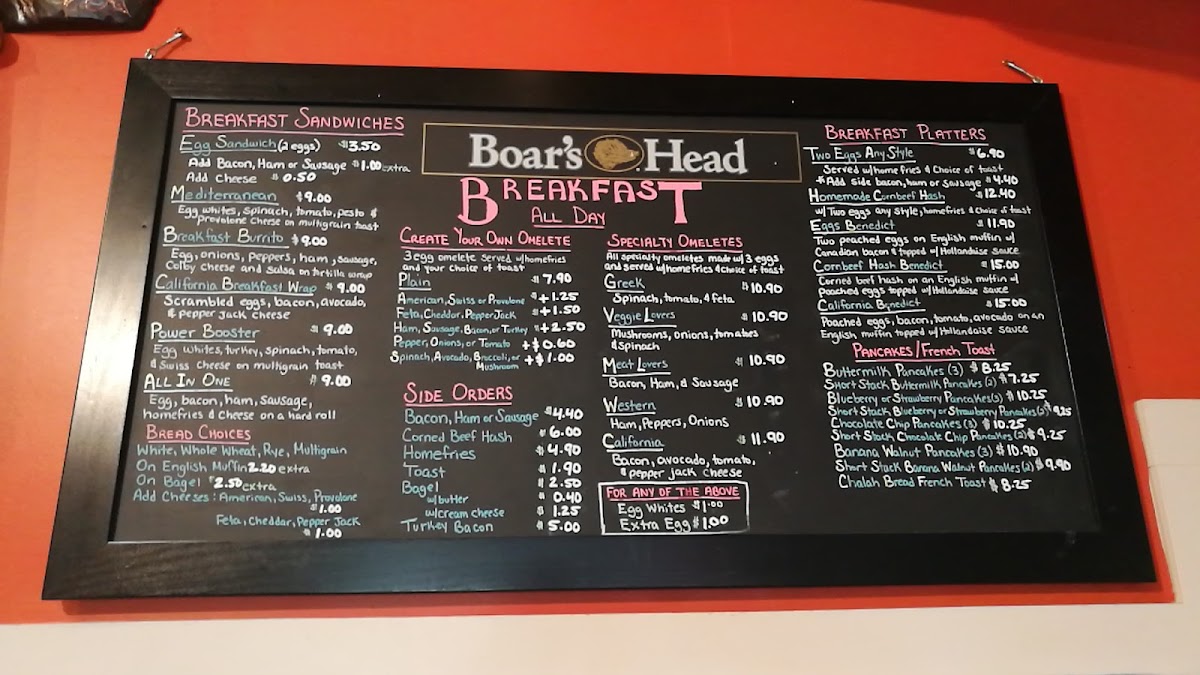 BREAKFAST SANDWICHES
Egg Sandwich (2 eggs) $3.50
Add Bacon, Ham or Sausage $1.00 extra
Add Cheese $0.50
Mediterranean $9.00
Egg whites, spinach, tomato, pesto &
provolone Cheese on multigrain toast
Breakfast Burrito $9.00
Egg, onions, peppers, ham, sausage,
Colby cheese and salsa on tortilla wrap
California Breakfast Wrap $9.00
Scrambled eggs, bacon, avocado,
& pepper jack cheese
Power Booster $9.00
Egg whites, turkey, spinach, tomato,
& Swiss cheese on multigrain toast
ALL IN ONE $9.00
Egg, bacon, ham, sausage,
homefries & Cheese on a hard roll
BREAD CHOICES
White, Whole Wheat, Rye, Multigrain
On English Muffin 2.20 extra
On Bagel $2.50 extra
Add Cheeses: American, Swiss, Provolone
$1.00
Feta, Cheddar, Pepper Jack
$1.00
Boar's Head
BREAKFAST
ALL DAY
CREATE YOUR OWN OMELETE
3 egg omelete served w/homefries
and your choice of toast
Plain $7.90
American, Swiss or Provolone $+1.25
Feta, Cheddar, Pepper Jack $+1.50
Ham, Sausage, Bacon, or Turkey $+2.50
Pepper, Onions, or Tomato +$0.60
Spinach, Avocado, Broccoli, or +$1.00
Mushroom
SIDE ORDERS
Bacon, Ham or Sausage $4.40
Corned Beef Hash $6.00
Homefries $4.90
Toast $1.90
Bagel $2.50
w/butter $0.40
w/cream cheese $1.25
Turkey Bacon $5.00
SPECIALTY OMELETES
All specialty omeletes made w/3 eggs
and served w/homefries & choice of toast
Greek $10.90
Spinach, tomato, & feta
Veggie Lovers $10.90
Mushrooms, onions, tomatoes
& spinach
Meat Lovers $10.90
Bacon, Ham, & Sausage
Western $10.90
Ham, Peppers, Onions
California $11.90
Bacon, avocado, tomato,
& pepper jack cheese
FOR ANY OF THE ABOVE
Egg Whites $1.00
Extra Egg $1.00
BREAKFAST PLATTERS
Two Eggs Any Style $6.90
Served w/home fries & Choice of toast
*Add side bacon, ham or Sausage $4.40
Homemade Cornbeef Hash $12.40
w/ Two eggs any style, homefries & choice of toast
Eggs Benedict $11.90
Two peached eggs on English muffin w/
Canadian bacon & topped w/ Hollandaise sauce
Cornbeef Hash Benedict $15.00
Corned beef hash on an English muffin w/
Poached eggs topped w/ Hollandaise sauce
California Benedict $15.00
Poached eggs, bacon, tomato, avocado on an
English muffin topped w/ Hollandaise sauce
PANCAKES/French TOAST
Buttermilk Pancakes (3) $8.25
Short Stack Buttermilk Pancakes (2) $7.25
Blueberry or Strawberry Pancakes (3) $10.25
Short Stack Blueberry or Strawberry Pancakes (2) $9.25
Chocolate Chip Pancakes (3) $10.25
Short Stack Chocolate Chip Pancakes (2) $9.25
Banana Walnut Pancakes (3) $10.90
Short Stack Banana Walnut Pancakes (2) $9.90
Chalah Bread French Toast $8.25